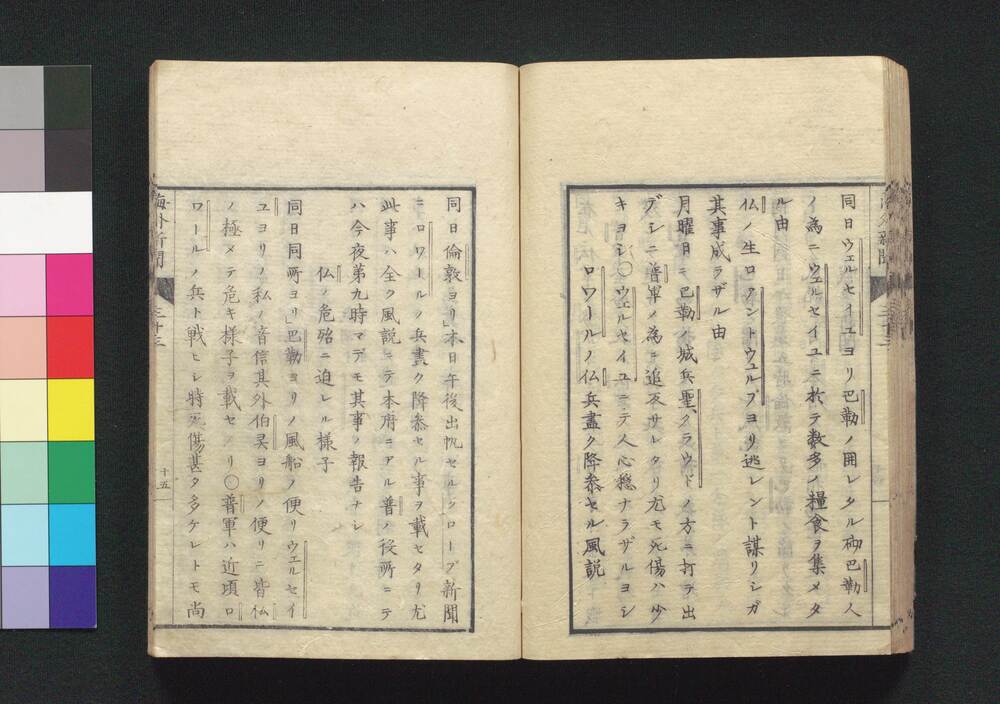 同日ウェルセイユヨリ巴勒ノ囲レタル砌巴勒人
ノ為ニウェルセイユニ於テ数多ノ糧食ヲ集メタ
ル由
仏ノ生口アントウェルプヨリ逃レント謀リシガ
其事成ラザル由
月曜日ニ巴勒ノ城兵聖クラウドノ方ニ打テ出
デシニ普軍ノ為ニ追返サレタリ尤モ死傷ハ少
キヨシ〇ウェルセイユニテ人心穏ナラザルヨシ
ロワールノ仏兵盡ク降参セル風説
同日倫敦ヨリ」本日午後出帆セルグローブ新聞
ニロワールノ兵盡ク降参セル事ヲ載セタリ尤
此事ハ全ク風説ニテ本府ニアル普ノ役所ニテ
ハ今夜第九時マデモ其事ノ報告ナシ
仏ノ危殆ニ迫レル様子
同日同所ヨリ」巴勒ヨリノ風船ノ便リウエルセイ
ユヨリノ私ノ音信其外伯灵ヨリノ便リニ皆仏
ノ極メテ危キ様子ヲ載セタリ〇普軍ハ近頃ロ
ワールノ兵ト戦ヒシ時死傷甚タ多ケレトモ尚
海外新聞
三十三
十五